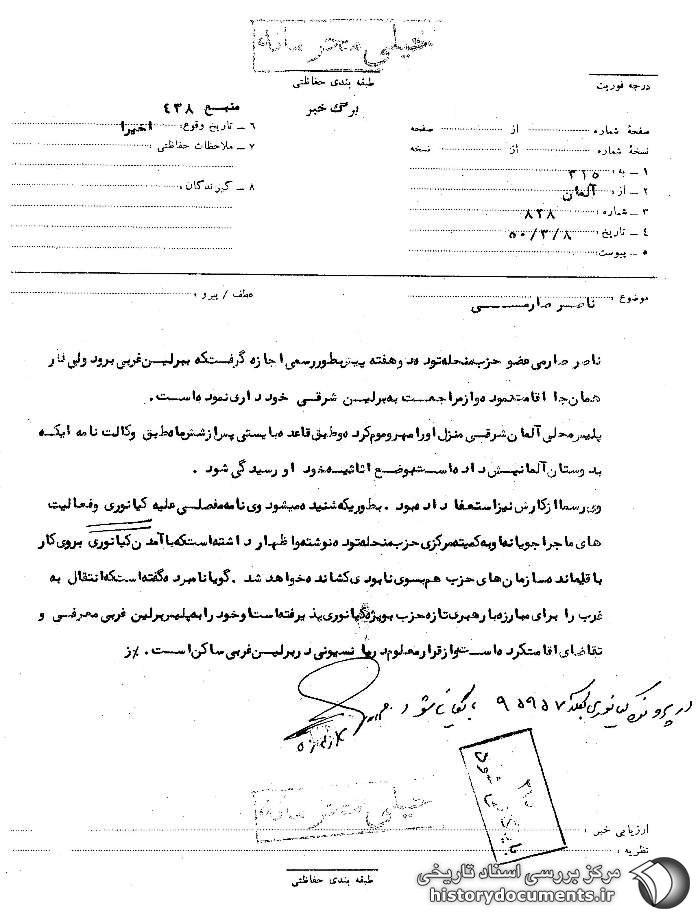 خیلی محرمانه
درجه فوریت
طبقه بندی حفاظتی
برگ خبر
منبع ٤٣٨
صفحهٔ شماره از صفحه
نسخهٔ شماره از نسخه
١ - به : ٣١٥
٢ - از : آلمان
٣ - شماره : ٨٣٨
٤ - تاریخ : ٥٠/٣/٨
٥ - پیوست
٦ - تاریخ وقوع : اخیرا
٧ - ملاحظات حفاظتی :
٨ - گیرندگان :
موضوع : ناصر صارمی
عطف / پیرو :
ناصر صارمی عضو حزب منحله توده دو هفته پیش بطور رسمی اجازه گرفت که ببرلین غربی برود ولی در
همان جا اقامت نموده و از مراجعت به برلین شرقی خود داری نموده است .
پلیس محلی آلمان شرقی منزل او را مهر و موم کرده و طبق قاعده بایستی پس از شش ماه طبق وکالت نامه ایکه
بدوستان آلمانیش داده است بوضع اثاثیه خود او رسیدگی شود .
وی رسما از کارش نیز استعفا داده بود . بطوریکه شنیده میشود وی نامه مفصلی علیه کیانوری و فعالیت
های ماجراجویانه او به کمیته مرکزی حزب منحله توده نوشته و اظهار داشته است که با آمدن کیانوری بروی کار
باقیمانده سازمان های حزب هم بسوی نابودی کشانده خواهد شد . گویا نامبرده گفته است که انتقال به
غرب را برای مبارزه با رهبری تازه حزب بویژه کیانوری پذیرفته است و خود را به پلیس برلین غربی معرفی و
تقاضای اقامت کرده است و از قرار معلوم در پانسیونی در برلین غربی ساکن است .
در پرونده کیانوری بکلاسه ٩٥٩٥٧ بایگانی شود
٣١٥
بایگانی شود
خیلی محرمانه
ارزیابی خبر :
نظریه :
طبقه بندی حفاظتی
مرکز بررسی اسناد تاریخی
historydocuments.ir